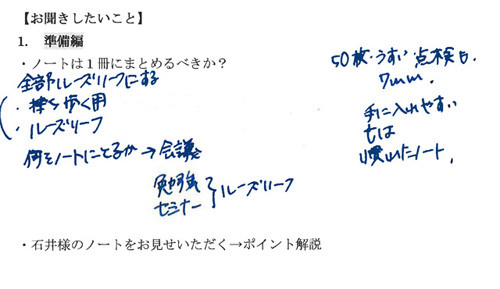 【お聞きしたいこと】
1. 準備編
・ノートは1冊にまとめるべきか？
全部ルーズリーフにする
・持ち歩く用
・ルーズリーフ
何をノートにとるか→会議
勉強
セミナー
ルーズリーフ
50枚・うすい
7mm.
手に入れやすい
もしくは
慣れたノート.
・石井様のノートをお見せいただく→ポイント解説